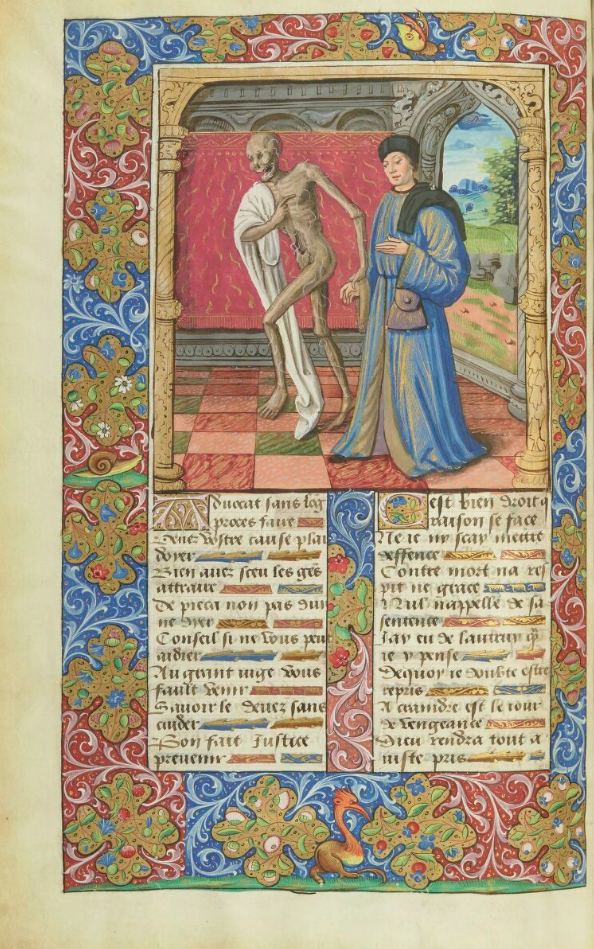 Aduocat sans log
proces faire
Venez vostre cause plai
doyer
Bien auez sceu les ges
attraire
De pieca non pas dui
ne dyer
Conseil si ne vous peut
aidier
Au grant iuge vous
fault venir
Sauoir le deuez sans
cuider
Son fait Iustice
preuenir
Cest bien droit q
raison se face
Ne ie ny scay mettre
deffence
Contre mort na res
pit ne grace
Nul nappelle de sa
sentence
Jay eu de lautruy
ie y pense
Dequoy ie doubte estre
repris
A craindre est le iour
de vengeance
Dieu rendra tout a
iuste pris